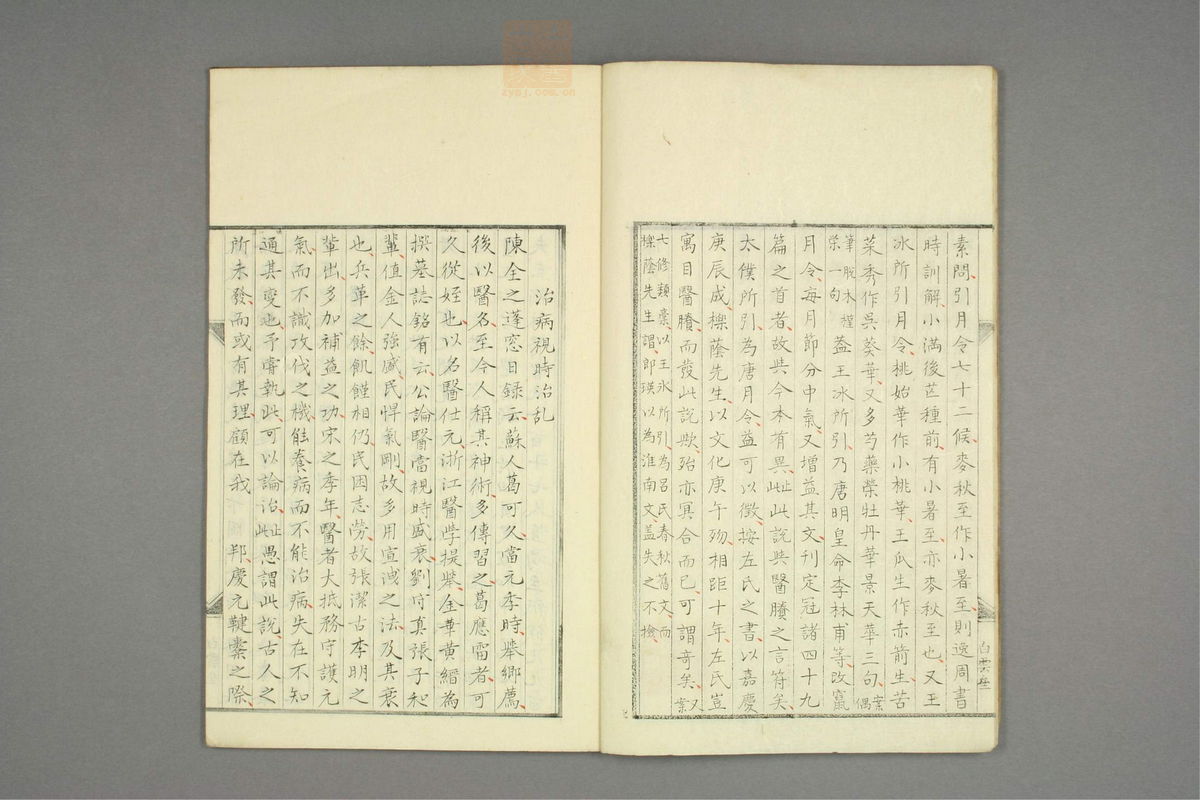 素問引月令七十二候麥秋至作小暑至則逸周書
時訓解小滿後芒種前有小暑至亦麥秋至也又王
冰所引月令桃始華作小桃華王瓜生作赤箭生苦
菜秀作吳葵華又多芍藥榮牡丹華景天華三句案偶
筆脫木槿榮一句蓋王冰所引乃唐明皇命李林甫等改竄
月令每月節分中氣又增益其文刊定冠諸四十九
篇之首者故與今本有異此說與醫賸之言符矣
太僕所引為唐月令益可以徵按左氏之書以嘉慶
庚辰成櫟蔭先生以文化庚午歿相距十年左氏豈
寓目醫賸而發此說歟殆亦冥合而已可謂奇矣又案
七修類稾以王冰所引為呂氏春秋舊文而
櫟蔭先生謂郎瑛以為淮南文蓋失之不撿
白雲
治病視時治乱
陳全之蓬窓日録云蘇人葛可久當元季時與鄉薦
後以醫名至今人稱其神術多傳習之葛應雷者可
久從姪也以名醫仕元浙江醫學提舉金華黃縉為
撰墓誌銘有云公論醫當視時盛衰劉守真張子和
輩值金人強盛民悍氣剛故多用宣洩之法及其衰
也兵革之餘飢饉相仍民困志勞故張潔古李明之
輩出多加補益之功宋之季年醫者大抵務守護元
氣而不識攻伐之機能養病而不能治病失在不知
通其變也予嘗執此可以論治此愚謂此說古人之
所未發而或有其理顧在我 邦慶元鞬櫜之際